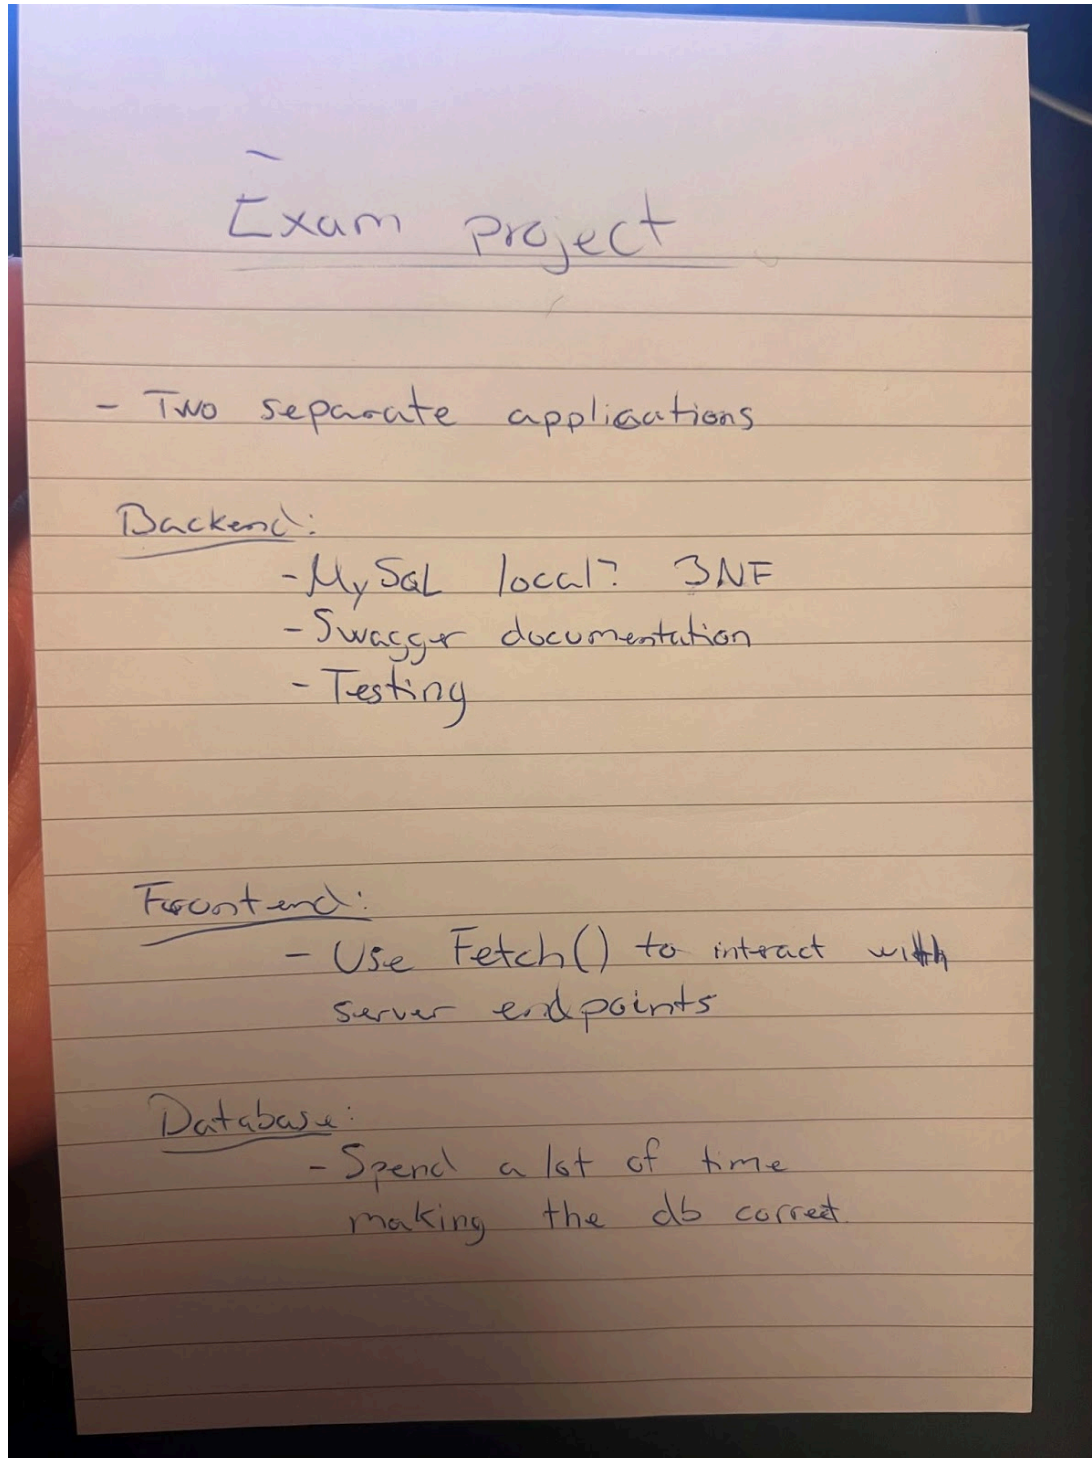 Exam project
- Two separate applications
Backend:
- MySQL local? 3NF
- Swagger documentation
- Testing
Frontend:
- Use Fetch() to interact with
server endpoints
Database:
- Spend a lot of time
making the db correct.